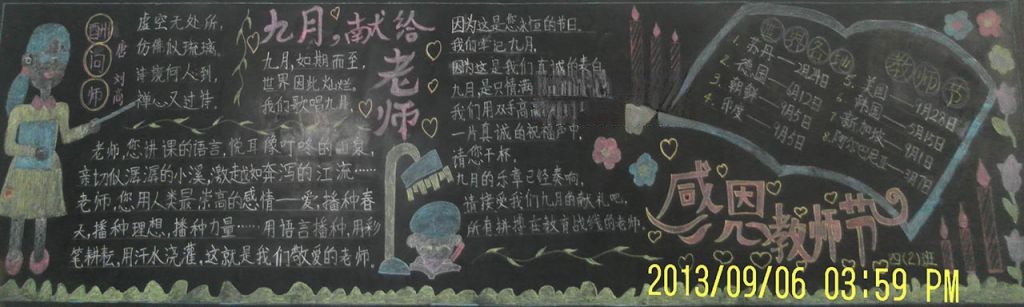 酬问师
唐 刘商
虚空无处所,
仿佛似琉璃。
诗境何人到,
禅心又过诗。
老师,您讲课的语言,悦耳像叮咚的山泉,
亲切似潺潺的小溪,激越如奔泻的江流……
老师,您用人类最崇高的感情——爱,播种春
天,播种理想,播种力量……用语言播种,用彩
笔耕耘,用汗水浇灌,这就是我们敬爱的老师。
九月,献给
老师
九月,如期而至,
世界因此灿烂。
我们歌唱九月,
因为这是您永恒的节日。
我们牢记九月,
因为这是我们真诚的表白
九月,是只情满
我们用双手高
一片真诚的祝福声中,
请您干杯,
九月的乐章已经奏响,
请接受我们九月的献礼吧,
所有耕耘在教育战线的老师。
世界各地
教师节
1. 苏丹——2月24日
2. 德国——6月12日
3. 朝鲜——9月5日
4. 印度——9月5日
5. 美国——9月28日
6. 韩国——5月15日
7. 新加坡——9月1日
8. 阿尔巴尼亚——3月7日
感恩教师节
六(2)班
2013/09/06 03:59 PM